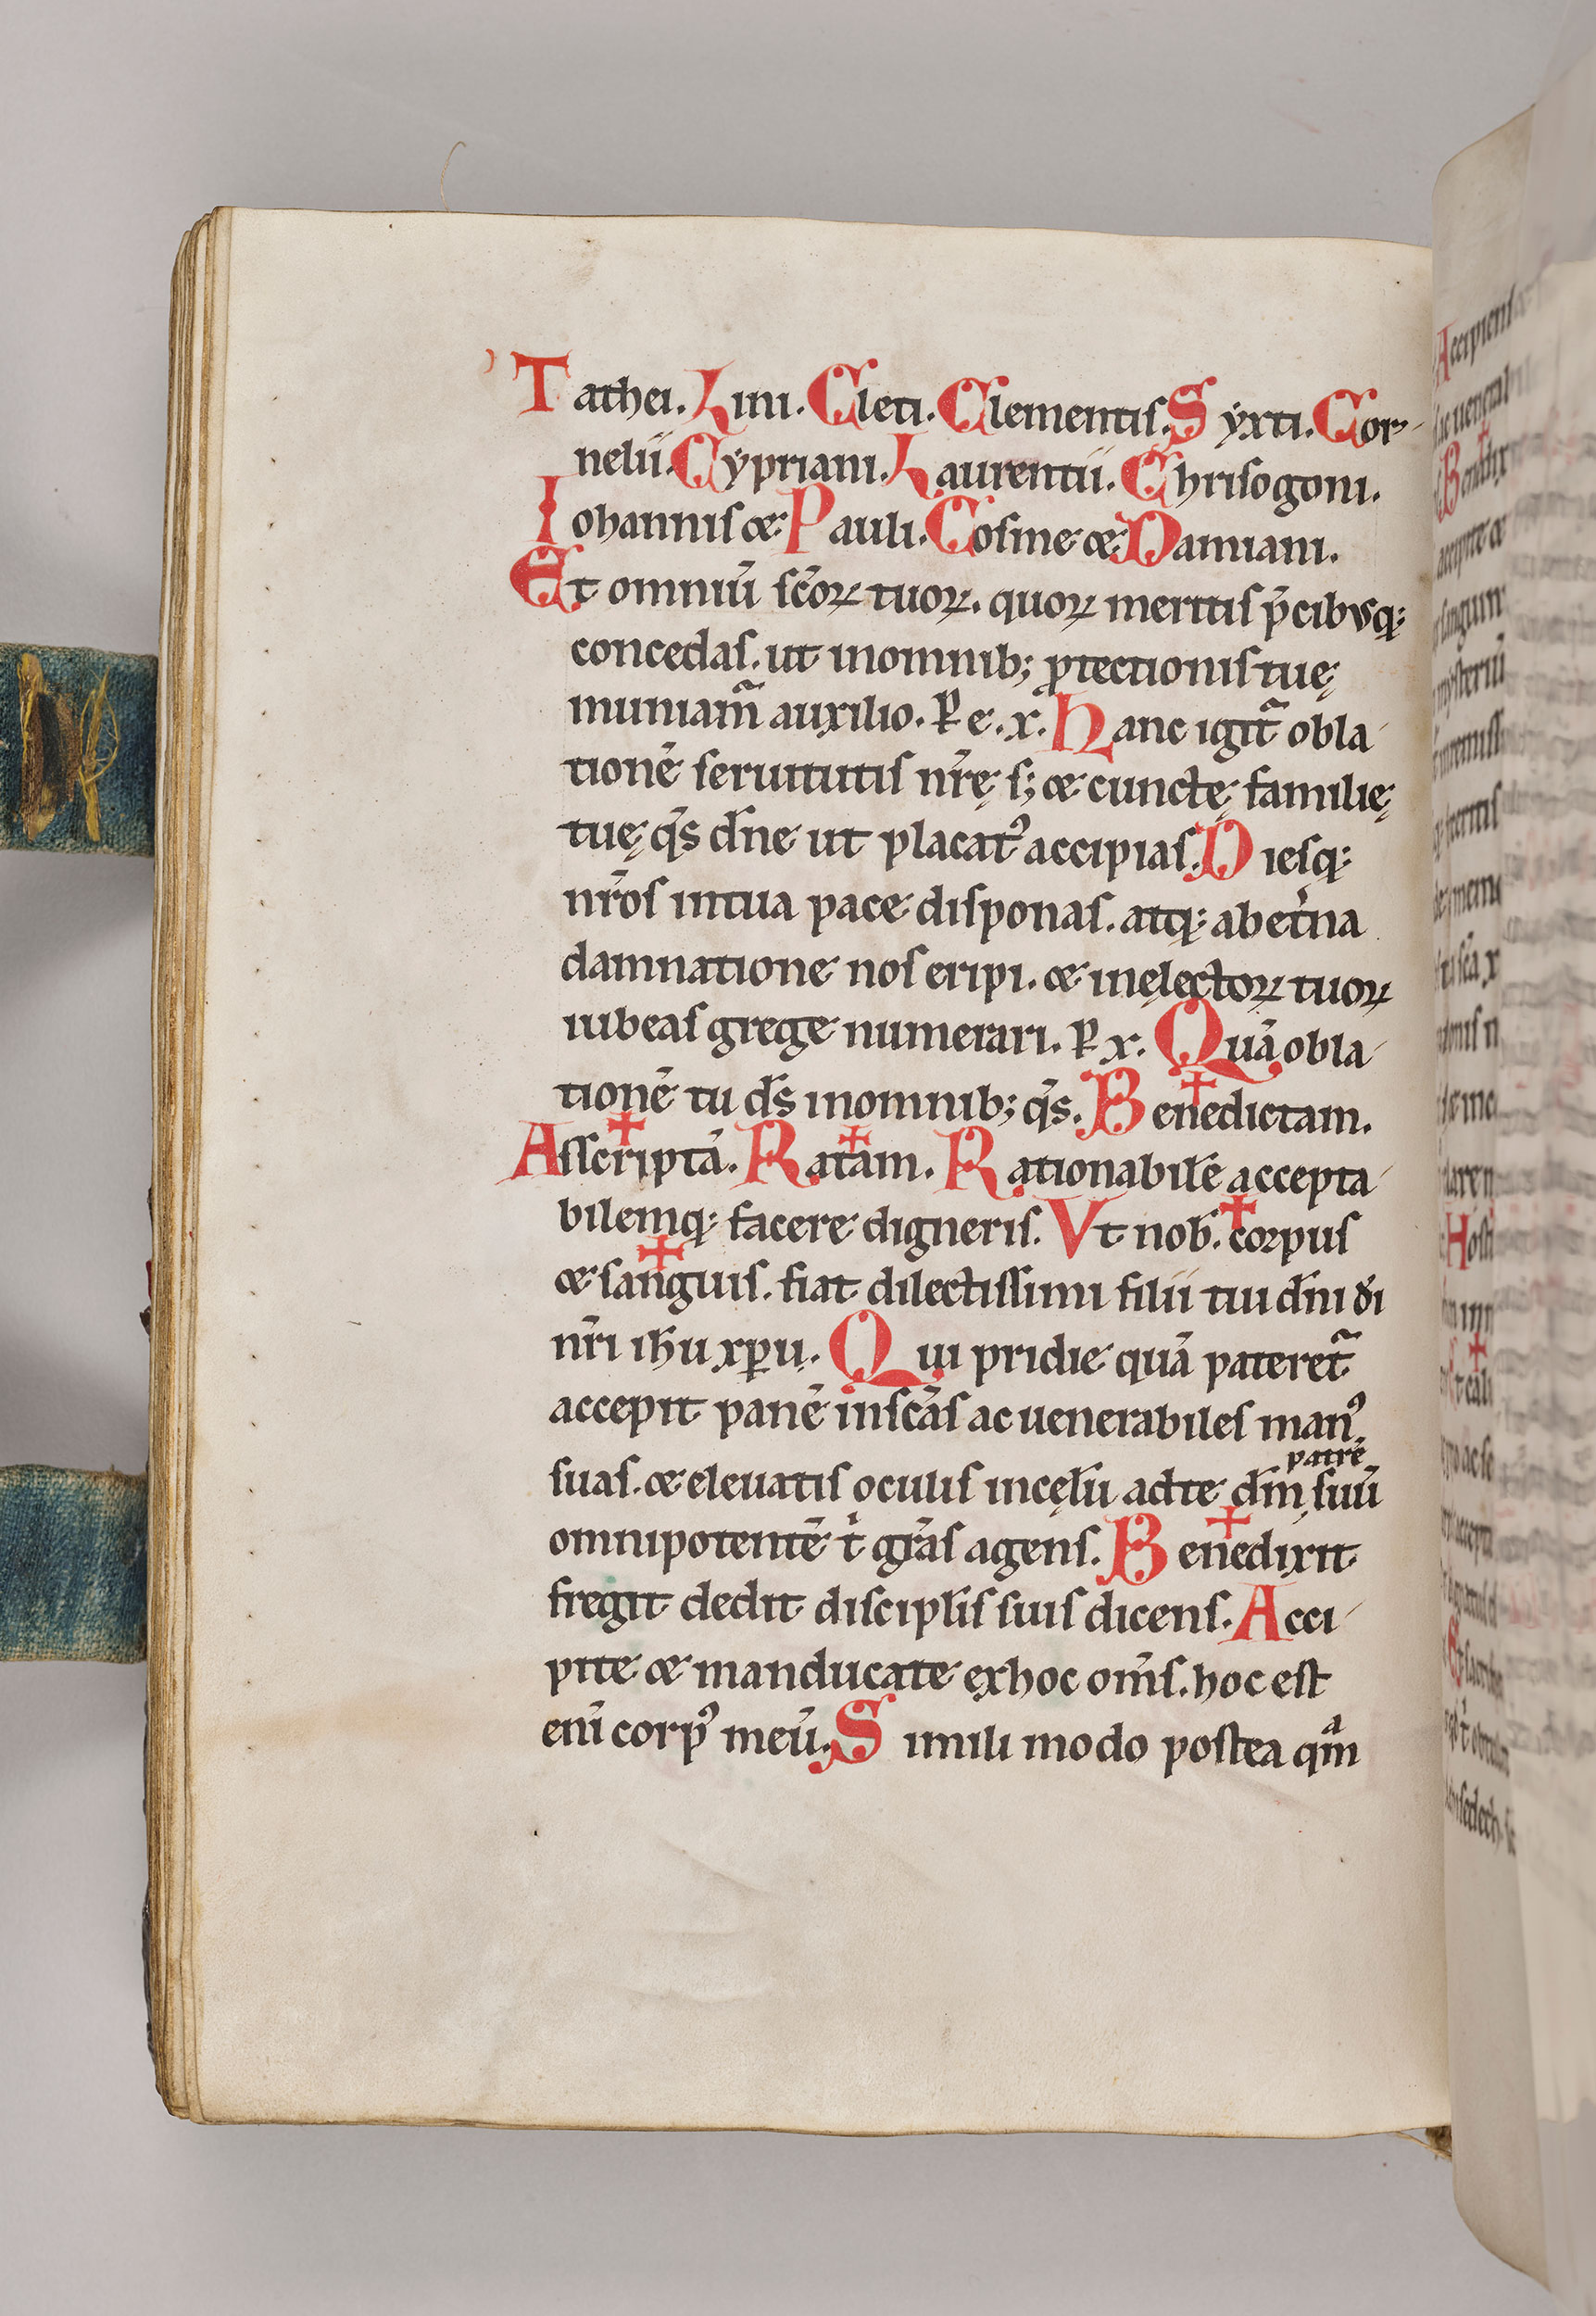 Tathei. Lini. Cleti. Clementiſ. Sẏxti. Cor-
nelii. Cẏpriani. Laurentii. Chriſogoni.
Iohanniſ & Pauli. Coſme & Damiani.
Et omniū ſc̄oꝝ tuoꝝ. quoꝝ meritiſ p̄cibuſq;
concedaſ. ut inomnib; ꝓtectioniſ tuę
muniam̃ auxilio. P e. x. Hanc igit̃ obla-
tionē ſeruitutiſ nr̄ę ſ; & cunctę familię
tuę q̄s dn̄e ut placatꝰ accipiaſ. Dieſq;
nr̄oſ intua pace diſponaſ. atq; abet̄na
damnatione noſ eripi. & inęlectoꝝ tuoꝝ
iubeaſ grege numerari. P x. Quā obla-
tionē tu ds̄ inomnib; q̄s. Bene✝dictam.
Aſſcri✝ptā. Rata✝m. Rationabilē accepta-
bilemq; facere digneriſ. Vt nob̄. ✝corpuſ
& ſan✝guiſ. fiat dilectiſſimi filii tui dn̄i di
nr̄i ih̄u xp̄u. Qui pridie quā pateret̃
accepit panē inſcāſ ac uenerabileſ manꝰ
patrē
ſuaſ. & eleuatiſ oculiſ incęlū adte dm̄ ſuū
omnipotentē t̄ gr̄aſ agenſ. Bene✝dixit
fregit dedit diſcipliſ ſuiſ dicenſ. Acci-
pite & manducate exhoc om̄ſ. hoc eſt
enī corpꝰ meū. Simili modo poſtea qᵃm